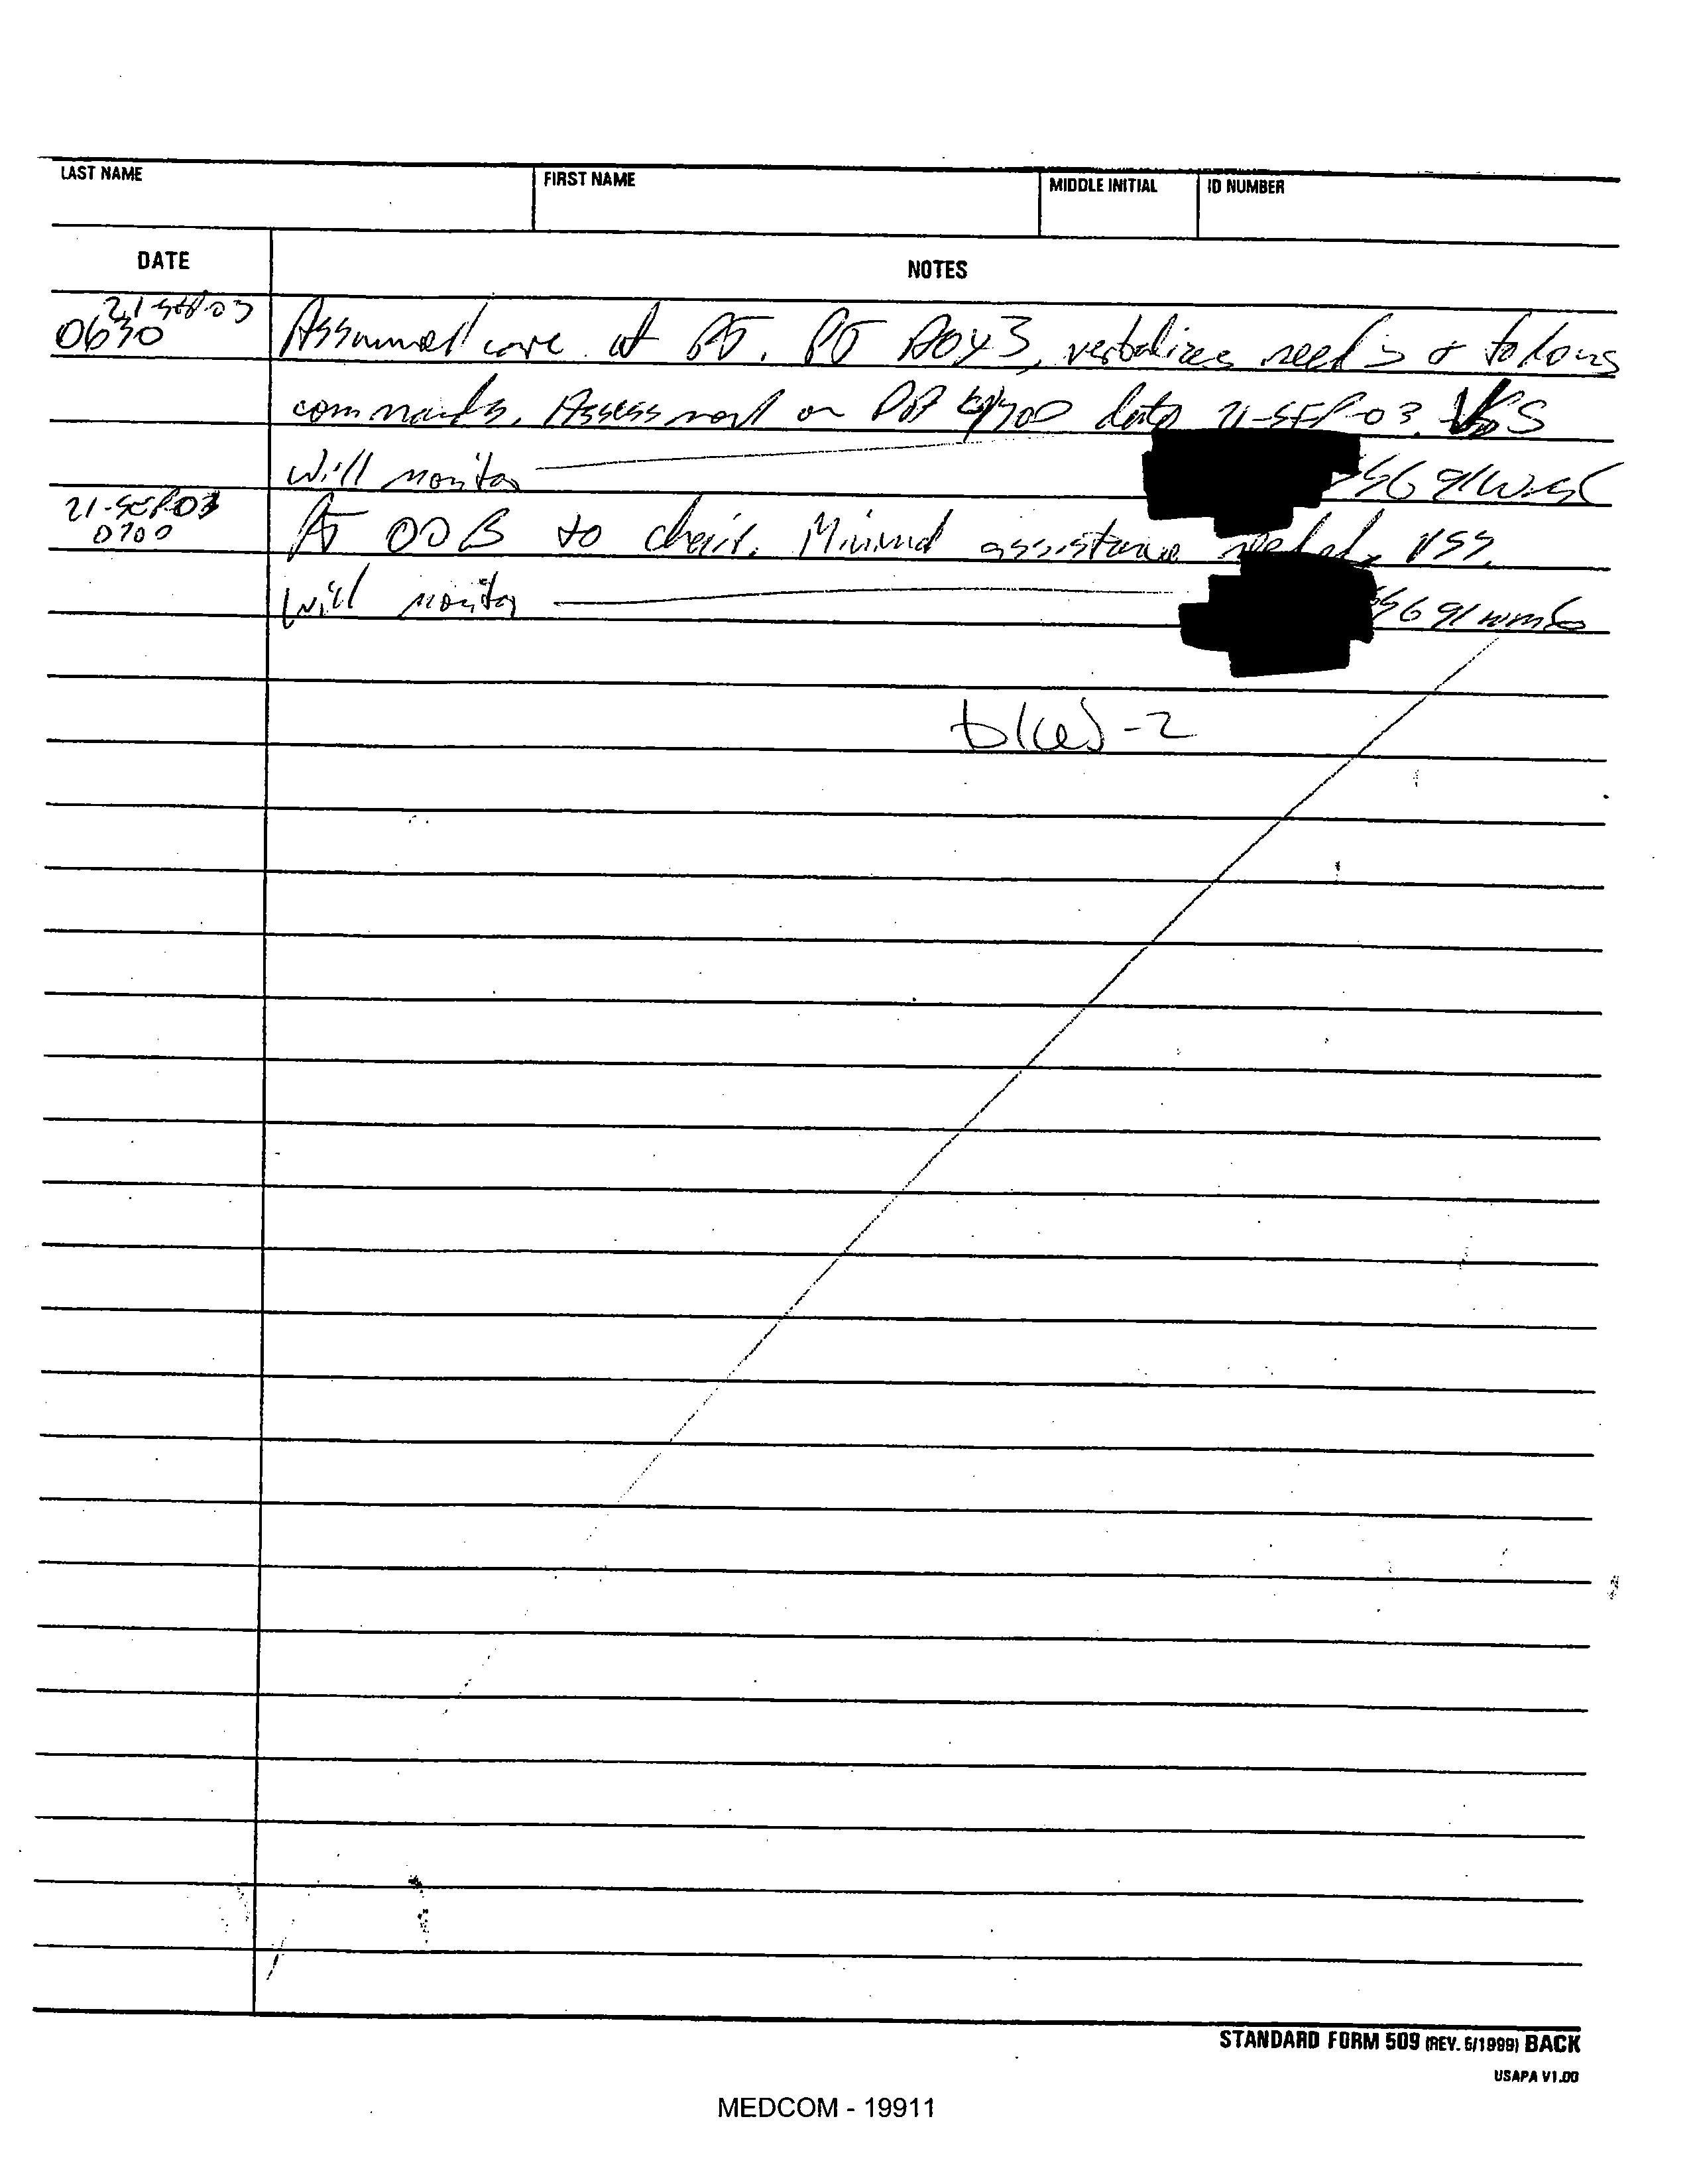 LAST NAME FIRST NAME MIDDLE INITIAL ID NUMBER
DATE NOTES
21-SEP-03
0630 Assumed care of PT. PT AOX3, verbalizes needs & follows
commands. Assessment on DA 4700 data 21-SEP-03. VSS
Will monitor SSG 91WM6
21-SEP-03
0700 PT OOB to chair. Minimal assistance needed, VSS.
Will monitor SSG 91WM6
b(6)-2
STANDARD FORM 509 (REV. 5/1999) BACK
USAPA V1.00
MEDCOM - 19911